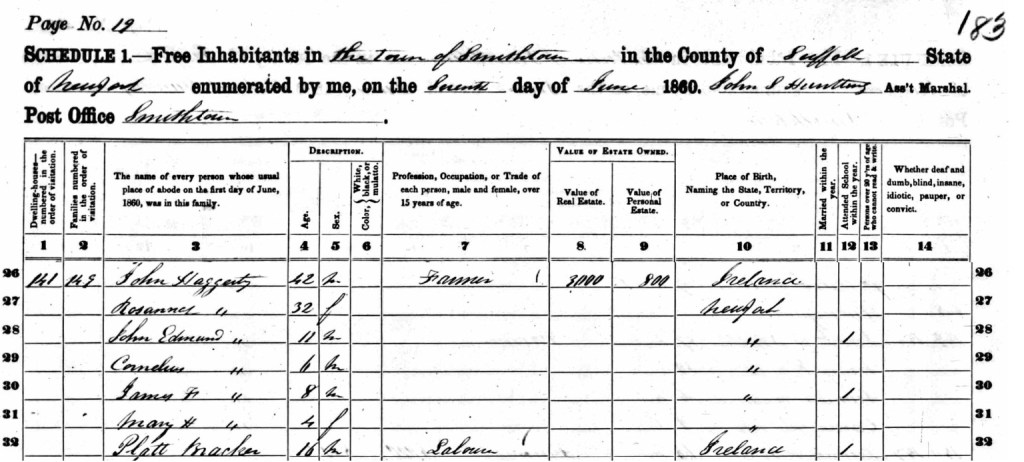 Page No. 19
183
SCHEDULE 1.—Free Inhabitants in the town of Smithtown in the County of Suffolk State
of New York enumerated by me, on the Seventh day of June 1860. John S Huntting Ass't Marshal.
Post Office Smithtown.
Dwelling-houses—numbered in the order of visitation.
Families numbered in the order of visitation.
The name of every person whose usual place of abode on the first day of June, 1860, was in this family.
DESCRIPTION.
Age.
Sex.
Color, { White, black, or mulatto.
Profession, Occupation, or Trade of each person, male and female, over 15 years of age.
VALUE OF ESTATE OWNED.
Value of Real Estate.
Value of Personal Estate.
Place of Birth, Naming the State, Territory, or Country.
Married within the year.
Attended School within the year.
Persons over 20 y'rs of age who cannot read & write.
Whether deaf and dumb, blind, insane, idiotic, pauper, or convict.
1 2 3 4 5 6 7 8 9 10 11 12 13 14
26 141 149 John Haggerty 42 m Farmer 3000 800 Ireland 26
27 Rosannes " 32 f New York 27
28 John Edmund " 11 m " 1 28
29 Cornelius " 6 m " 29
30 James F " 8 m " 1 30
31 Mary H " 4 f " 31
39 Platt Bracker 16 m Labourer Ireland 1 39